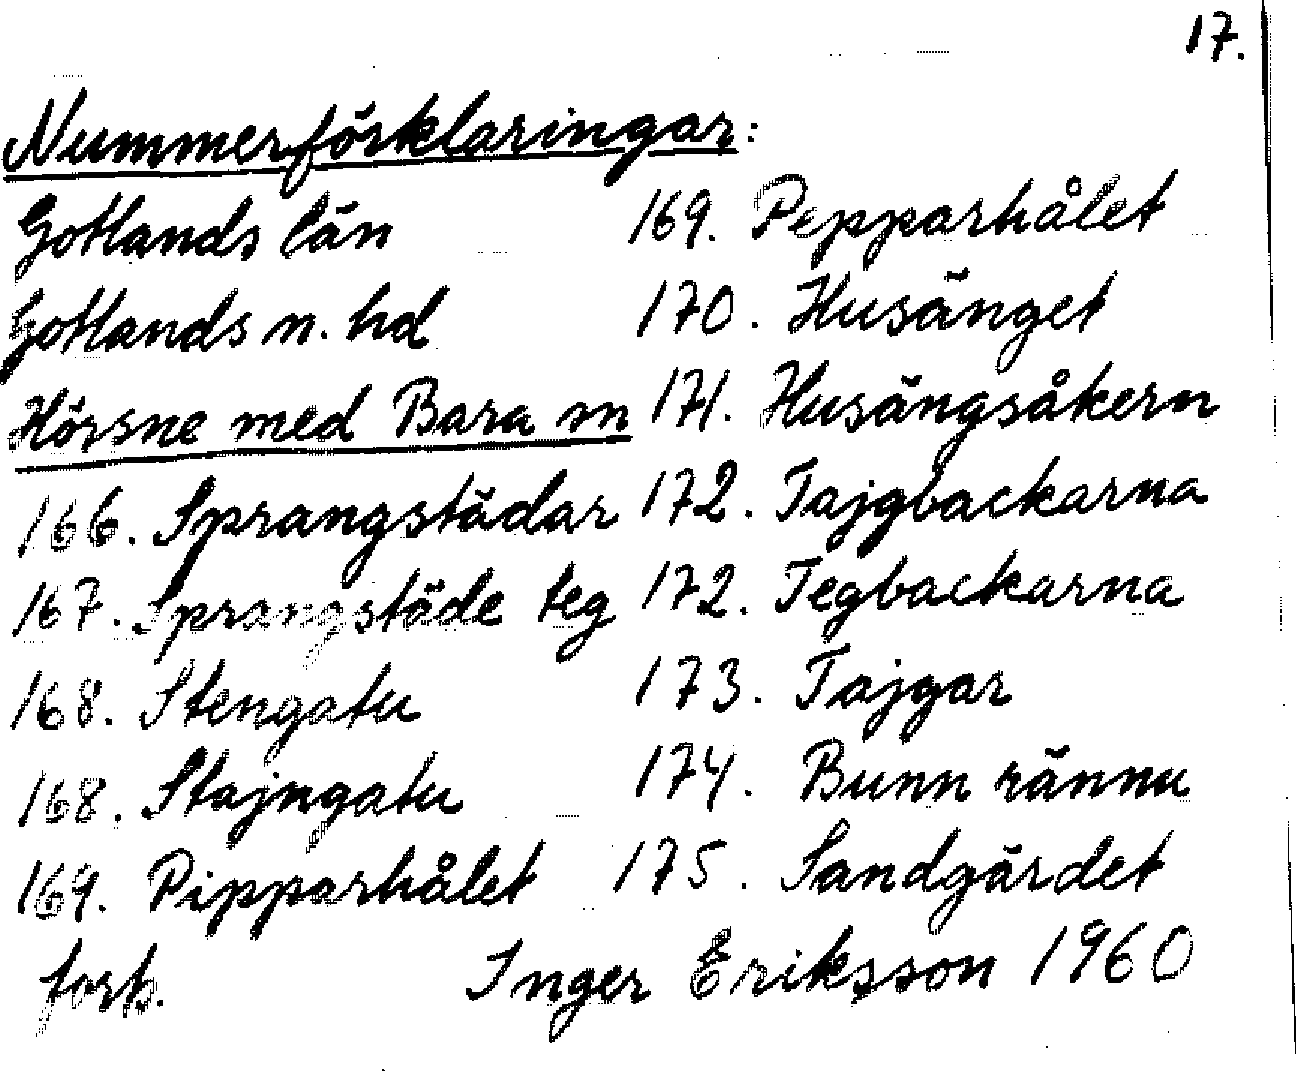 17.
Nummerförklaringar:
Gotlands län
Gotlands n. hd
Hörsne med Bara sn
166. Sprangstädar
167. Sprangstäde teg
168. Stengatu
168. Stajngatu
169. Pipparhålet
169. Pepparhålet
170. Husänget
171. Husängsåkern
172. Tajgbackarna
172. Tegbackarna
173. Tajgar
174. Bunn rännu
175. Sandgärdet
forts.
Inger Eriksson 1960